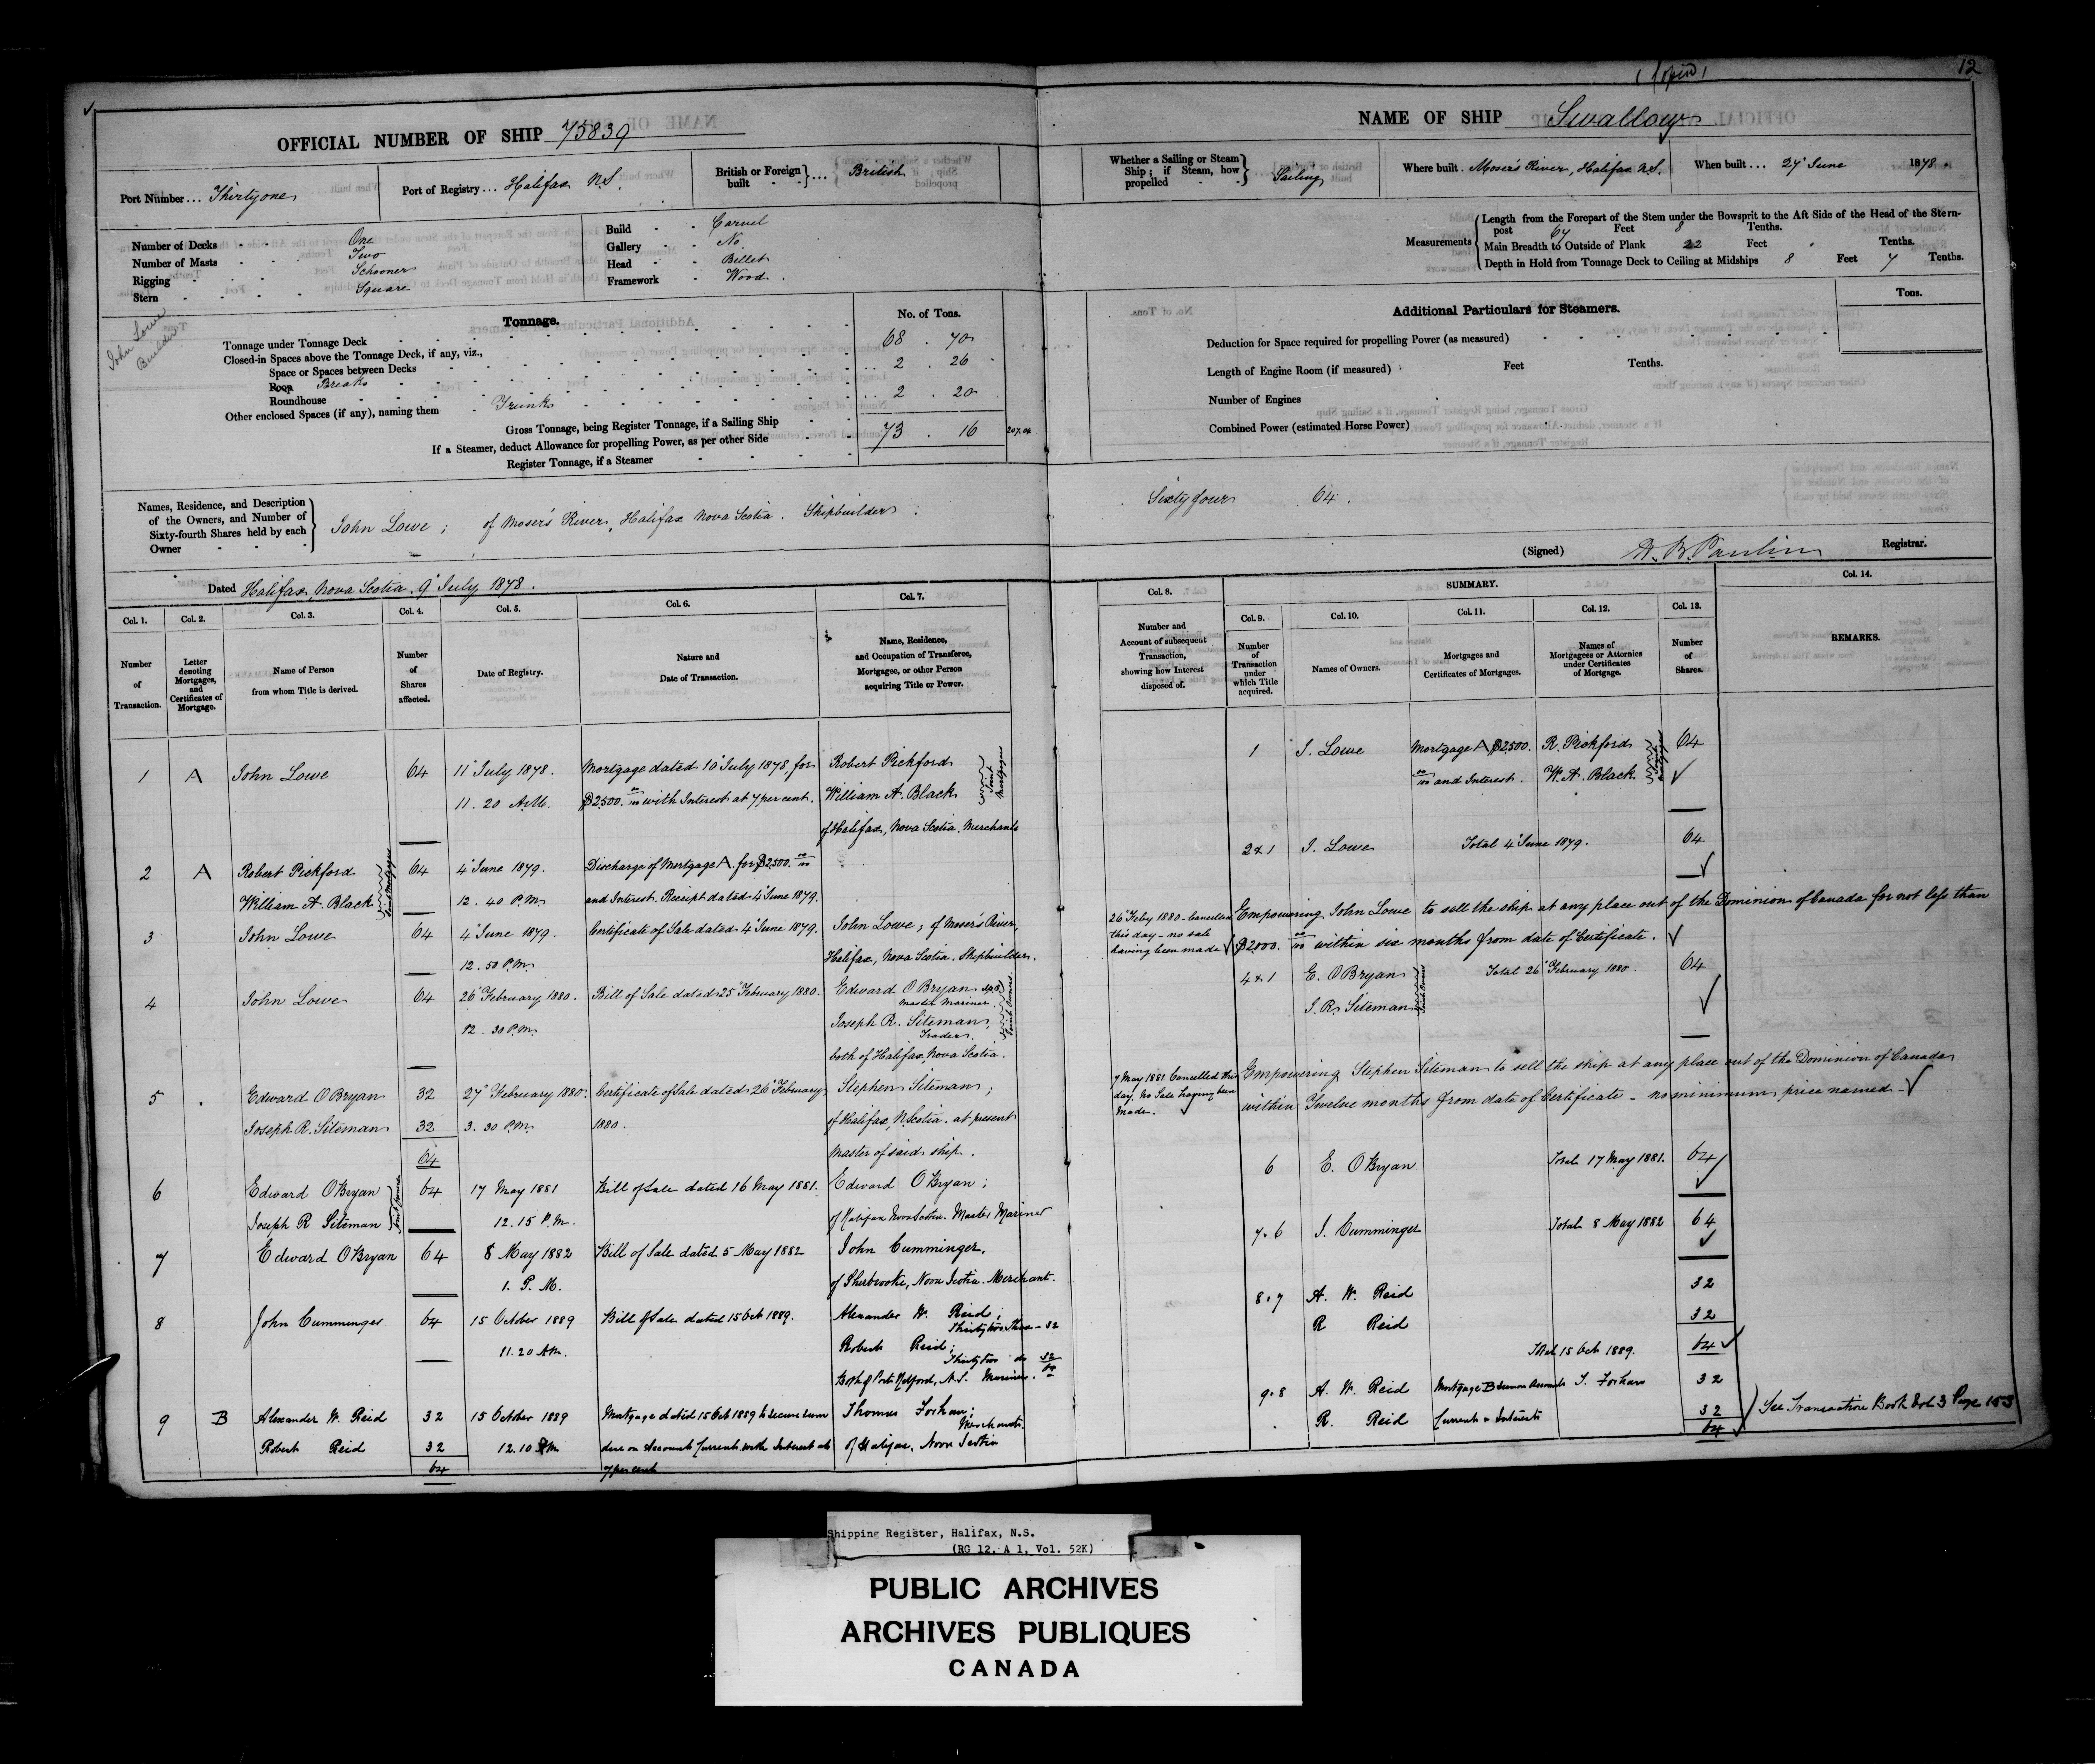 (Copied)
12
OFFICIAL NUMBER OF SHIP 75839
NAME OF SHIP Swallow
Port Number ... Thirty one
Port of Registry ... Halifax N.S.
British or Foreign built } ... British
Whether a Sailing or Steam Ship; if Steam, how propelled } Sailing
Where built . Moser's River, Halifax N.S.
When built ... 24 June 1878.
Number of Decks One
Number of Masts Two
Rigging Schooner
Stern Square
Build Carvel
Gallery No
Head Billet
Framework Wood
Measurements
Length from the Forepart of the Stem under the Bowsprit to the Aft Side of the Head of the Stern-
post 67 Feet 8 Tenths.
Main Breadth to Outside of Plank 22 Feet Tenths.
Depth in Hold from Tonnage Deck to Ceiling at Midships 8 Feet 7 Tenths.
John Lowe
Builder
Tonnage.
No. of Tons.
Tonnage under Tonnage Deck 68 . 70
Closed-in Spaces above the Tonnage Deck, if any, viz.,
Space or Spaces between Decks
Poop Breaks 2 . 26
Roundhouse
Other enclosed Spaces (if any), naming them Trunk 2 . 20
Gross Tonnage, being Register Tonnage, if a Sailing Ship 73 . 16
207.04
If a Steamer, deduct Allowance for propelling Power, as per other Side
Register Tonnage, if a Steamer
Additional Particulars for Steamers.
Tons.
Deduction for Space required for propelling Power (as measured)
Length of Engine Room (if measured) Feet Tenths.
Number of Engines
Combined Power (estimated Horse Power)
Names, Residence, and Description
of the Owners, and Number of
Sixty-fourth Shares held by each
Owner
John Lowe ; of Moser's River, Halifax Nova Scotia. Shipbuilder ;
Sixty four 64.
(Signed) Registrar.
Dated Halifax, Nova Scotia. 9 July 1878.
SUMMARY.
Col. 1. Number of Transaction.
Col. 2. Letter denoting Mortgages, and Certificates of Mortgage.
Col. 3. Name of Person from whom Title is derived.
Col. 4. Number of Shares affected.
Col. 5. Date of Registry.
Col. 6. Nature and Date of Transaction.
Col. 7. Name, Residence, and Occupation of Transferee, Mortgagee, or other Person acquiring Title or Power.
Col. 8. Number and Account of subsequent Transaction, showing how Interest disposed of.
Col. 9. Number of Transaction under which Title acquired.
Col. 10. Names of Owners.
Col. 11. Mortgages and Certificates of Mortgages.
Col. 12. Names of Mortgagees or Attornies under Certificates of Mortgage.
Col. 13. Number of Shares.
Col. 14. REMARKS.
1 A John Lowe 64 11 July 1878. Mortgage dated 10 July 1878, for Robert Pickford
11.20 A.M. $2500. 00/100 with Interest at 7 per cent. William A. Black
Joint Mortgagees
of Halifax, Nova Scotia. Merchants
2 A Robert Pickford 64 4 June 1879. Discharge of Mortgage A. for $2500. 00/100
William A. Black 12.40 P.M. and Interest. Receipt dated 4 June 1879.
Joint Mortgagees
3 John Lowe 64 4 June 1879. Certificate of Sale dated 4 June 1879. John Lowe; of Moser's River,
12.50 P.M. Halifax, Nova Scotia. Shipbuilder.
4 John Lowe 64 26 February 1880. Bill of Sale dated 25 February 1880. Edward O Bryan
12.30 P.M. Master Mariner
Joseph R. Siteman
Trader
Joint Owners
both of Halifax, Nova Scotia.
5 Edward O Bryan 32 27 February 1880. Certificate of Sale dated 26 February Stephen Siteman;
Joseph R. Siteman 32 3.30 P.M. 1880. of Halifax, N. Scotia. at present
64 Master of said ship.
6 Edward O Bryan 64 17 May 1881 Bill of Sale dated 16 May 1881. Edward O Bryan;
Joseph R Siteman 12.15 P.M. of Halifax Nova Scotia. Master Mariner
Joint Owners
7 Edward O Bryan 64 8 May 1882 Bill of Sale dated 5 May 1882 John Cumminger,
1. P.M. of Sherbrooke, Nova Scotia. Merchant.
8 John Cumminger 64 15 October 1889 Bill of Sale dated 15 Oct 1889. Alexander W. Reid;
Thirty two Shares - 32
11.20 AM. Robert Reid;
Thirty two do 32
64
Both of Port Medford, N.S. Mariners.
9 B Alexander W. Reid 32 15 October 1889 Mortgage dated 15 Oct 1889 to secure sum Thomas Forhan;
Merchant.
Robert Reid 32 12.10 PM due on Account Current with Interest at of Halifax, Nova Scotia
64 7 per cent
1 J. Lowe Mortgage A $2500. R. Pickford 64
00/100 and Interest. W. A. Black
Joint Mortgagees
2 & 1 J. Lowe Total 4 June 1879. 64
26 Feby 1880 - Cancelled
this day - no sale
having been made
Empowering John Lowe to sell the ship at any place out of the Dominion of Canada for not less than
$2000. 00/100 within six months from date of Certificate.
4 & 1 E. O Bryan Total 26 February 1880. 64
J. R. Siteman
Joint Owners
7 May 1881 Cancelled this
day, No Sale having been
made.
Empowering Stephen Siteman to sell the ship at any place out of the Dominion of Canada
within Twelve months from date of Certificate - no minimum price named -
6 E. O Bryan Total 17 May 1881. 64
7.6 J. Cumminger Total 8 May 1882 64
8.7 A. W. Reid 32
R Reid 32
Total 15 Oct 1889. 64
9.8 A. W. Reid Mortgage B Account T. Forhan 32
R. Reid Current & Interest 32
64
See Transaction Book Vol 3 Page 153
Shipping Register, Halifax, N.S.
(RG 12, A 1, Vol. 52K)
PUBLIC ARCHIVES
ARCHIVES PUBLIQUES
CANADA